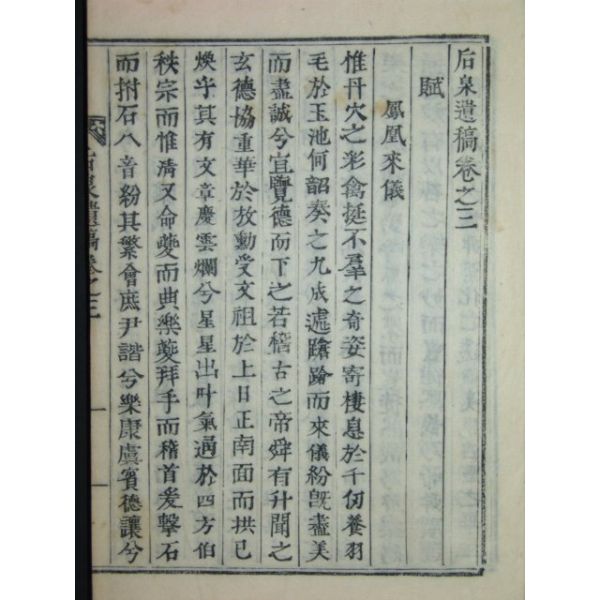 后泉遺稿卷之三
賦
鳳凰來儀
惟丹穴之彩禽挺不羣之奇姿寄棲息於千仞養羽
毛於玉池何韶奏之九成遽蹌蹌而來儀紛旣盡美
而盡誠兮宜覽德而下之若稽古之帝舜有升聞之
玄德協重華於放勳受文祖於上日正南面而拱己
煥乎其有文章慶雲爛兮星星出叶氣過於四方伯
秩宗而惟淸又命夔而典樂夔拜手而稽首爰擊石
而拊石八音紛其繁會庶尹諧兮樂康虞賓德讓兮
后泉遺稿卷之三
一